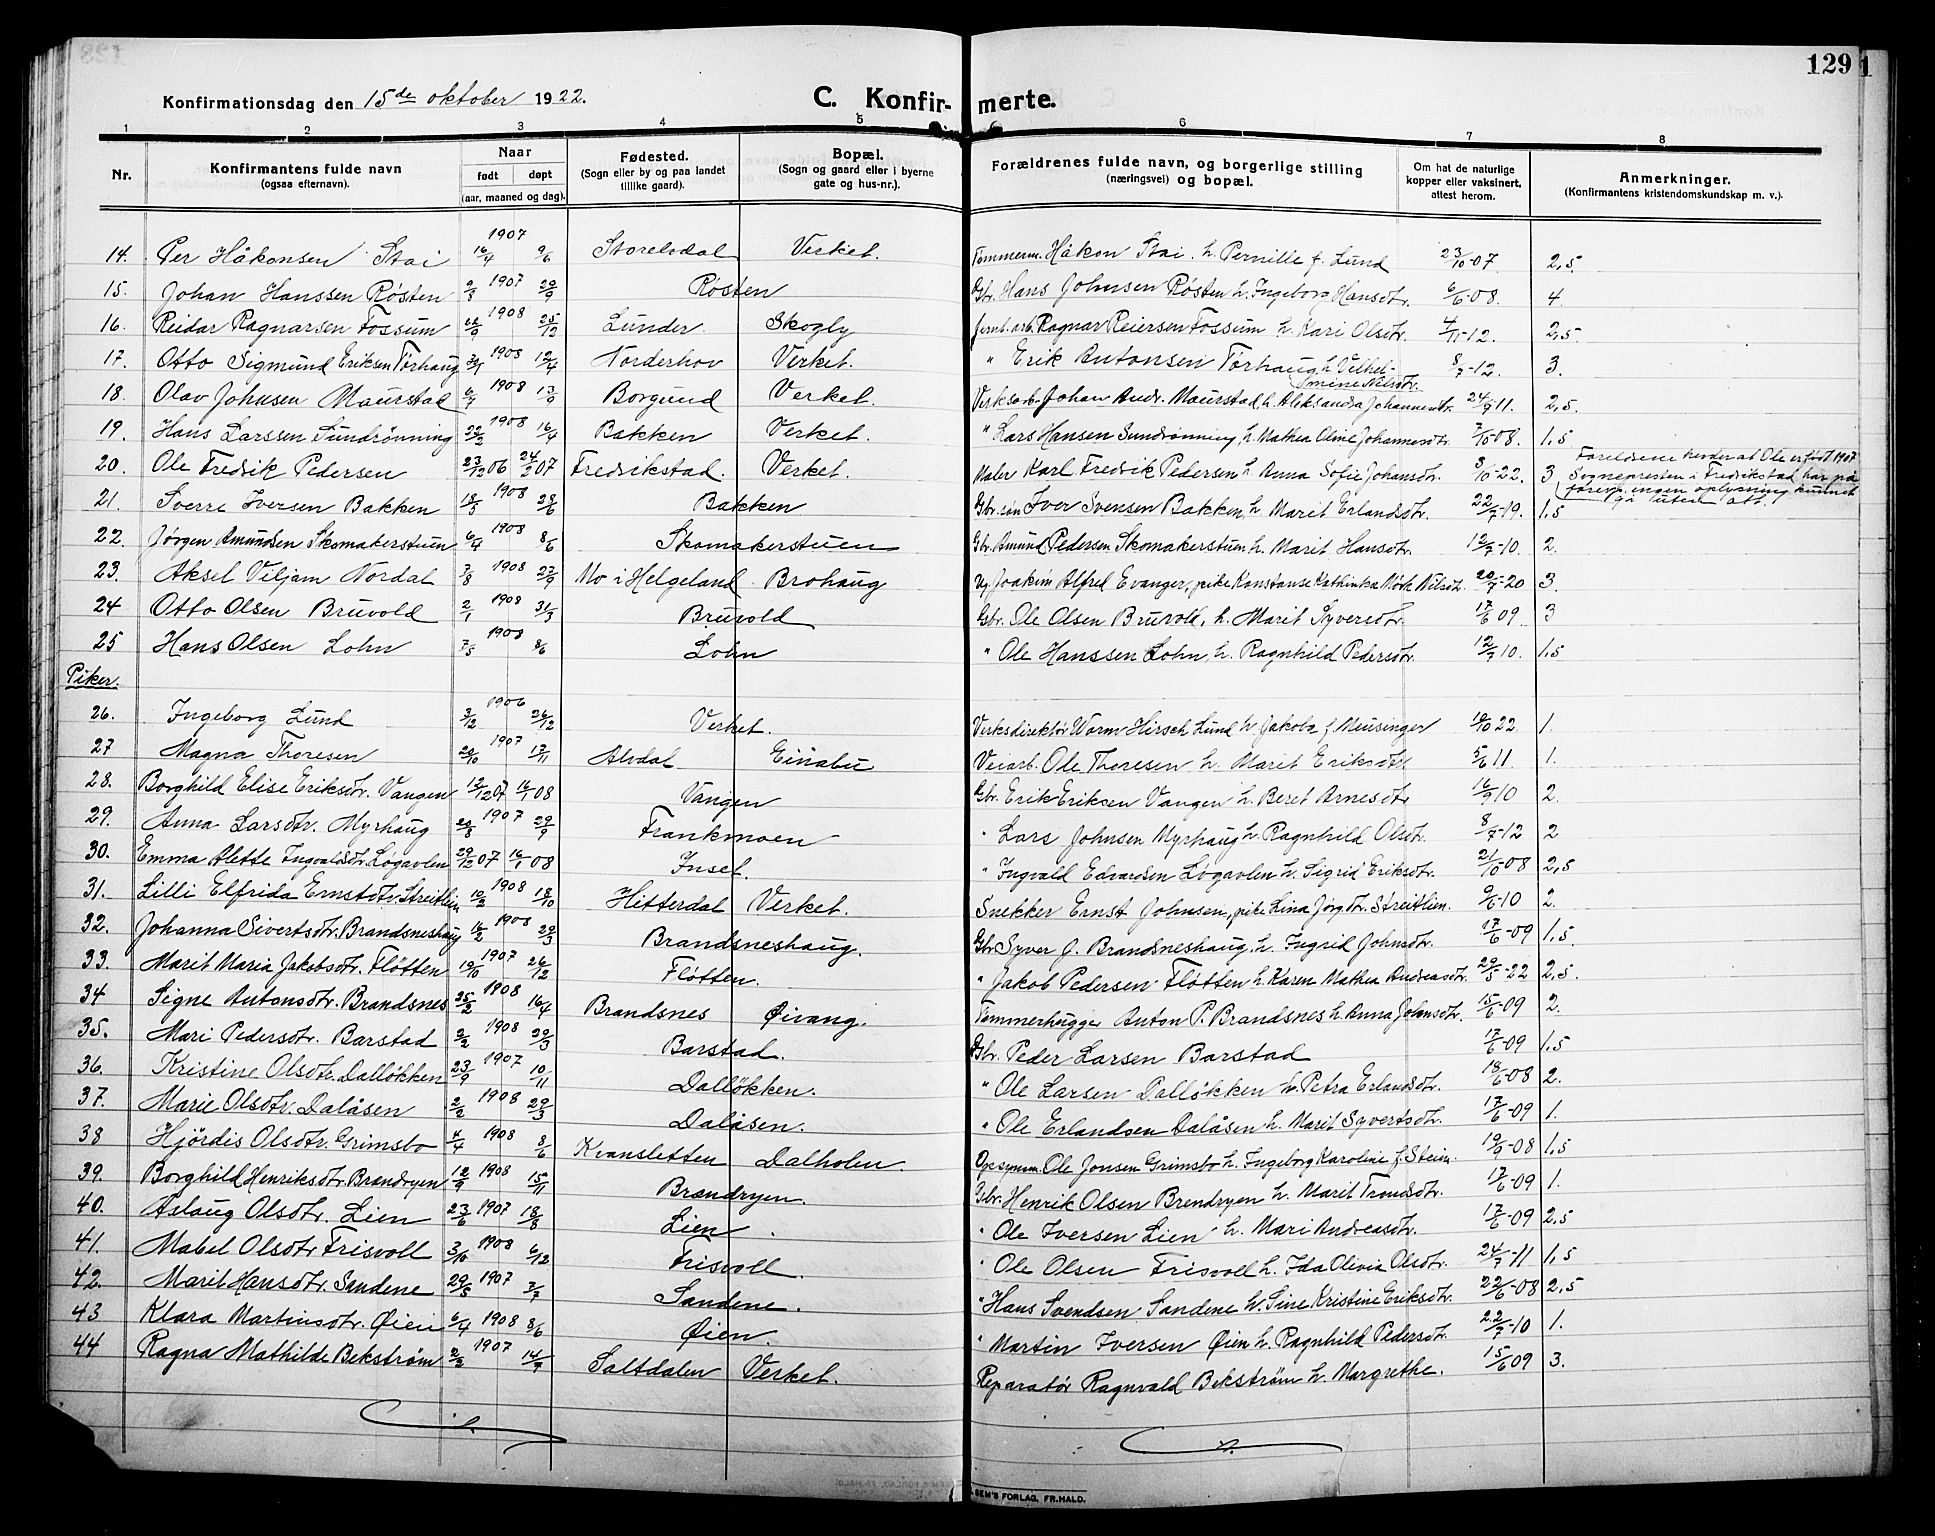 129
Konfirmationsdag den 15de oktober 1922. C. Konfir- merte.
1 2 3 4 5 6 7 8
Nr. Konfirmantens fulde navn (ogsaa efternavn). Naar født døpt (aar, maaned og dag). Fødested. (Sogn eller by og paa landet tillike gaard). Bopæl. (Sogn og gaard eller i byerne gate og hus-nr.). Forældrenes fulde navn, og borgerlige stilling (næringsvei) og bopæl. Om hat de naturlige kopper eller vaksinert, attest herom. Anmerkninger. (Konfirmantens kristendomskundskap m. v.).
14. Per Håkonsen Stai 16/4 1907 9/6 Storelvdal Verket. Tømmerm. Håkon Stai. h. Pernille f. Lund 23/10-07 2,5.
15. Johan Hanssen Røsten 2/8 1907 29/9 Røsten Gbr. Hans Johnsen Røsten h. Ingeborg Hansdtr. 6/6-08. 4.
16. Reidar Ragnarsen Fossum 22/9 1908 25/12 Lunder. Skogly Jernb.arb. Ragnar Reiersen Fossum h. Kari Olsdtr. 4/11-12. 2,5.
17. Otto Sigmund Eriksen Tørhaug 30/1 1908 12/4 Norderhov Verket. " Erik Antonsen Tørhaug h. Vilhelmine Nilsdtr. 8/7-12. 3.
18. Olav Johnsen Maurstad 6/7 1908 13/9 Borgund Verket. Verksarb. Johan Andr. Maurstad h. Aleksandra Johannesdtr. 24/9 11. 2,5.
19. Hans Larssen Sundrønning 22/2 1908 16/4 Bakken Verket. " Lars Hansen Sundrønning h. Mathea Oline Johannesdtr. 7/10-08. 1,5
20. Ole Fredrik Pedersen 23/12 06 24/2 07 Fredrikstad. Verket. Maler Karl Fredrik Pedersen h. Anna Sofie Johansdtr. 3/10-22. 3 Foreldrene hevder at Ole er født 1907 Sognepresten i Fredrikstad har på foresp. ingen oplysning kunnet gi uten att.
21. Sverre Iversen Bakken 18/5 1908 28/6 Bakken Gbr.søn Iver Svensen Bakken, h. Marit Erlandsdtr. 22/7-19. 1,5
22. Jørgen Amundsen Skomakerstuen 6/4 1908 8/6 Skomakerstuen Gbr. Amund Pedersen Skomakerstuen h. Marit Hansdtr. 12/7-10. 2.
23. Aksel Viljam Nordal 7/8 1908 27/9 Mo i Helgeland. Brohaug Ug. Joakim Alfred Evanger, pike Konstanse Kathinka Mörk Nilsdtr. 20/7-20 3.
24 Otto Olsen Bruvold 2/1 1908 31/3 Bruvold Gbr. Ole Olsen Bruvold, h. Marit Syversdtr. 17/6 09 3
25 Hans Olsen Lohn 7/5 1908 8/6 Lohn " Ole Hanssen Lohn, h. Ragnhild Pedersdtr. 12/7 10. 1,5
Piker.
26. Ingeborg Lund 3/12 1906 26/12 Verket. Verksdirektør Worm Hirsch Lund h. Jakoba f. Meusinger 10/10 22 1.
27 Magna Thoresen 20/10 1907 17/11 Alvdal Einabu Veiarb. Ole Thoresen h. Marit Eriksdtr 5/6 11 1.
28. Borghild Elise Eriksdtr. Vangen 12/12 07 16/1 08 Vangen Gbr. Erik Eriksen Vangen h. Beret Arnesdtr 16/9 10 2.
29. Anna Larsdtr. Myrhaug 20/8 1907 29/9 Frankmoen " Lars Johnsen Myrhaug h. Ragnhild Olsdtr. 8/7-12 2
30. Emma Alette Ingvaldsdtr. Løgavlen 29/12 07 16/1 08 Inset. " Ingvald Edvardsen Løgavlen h. Sigrid Eriksdtr. 21/10-08 2,5
31. Lilli Elfrida Ernstsdtr. Streitlien 10/2 1908 18/10 Hitterdal Verket. Snekker Ernst Johnsen, pike Lina Jørgdtr. Streitlien. 9/6-10 2.
32. Johanna Sivertsdtr. Brandsneshaug 16/2 1908 29/3 Brandsneshaug. Gbr. Syver J. Brandsneshaug h. Ingrid Johnsdtr. 17/6-09 1,5.
33. Marit Maria Jakobsdtr. Fløtten 19/10 1907 26/12 Fløtten. " Jakob Pedersen Fløtten h. Karen Mathea Andreasdtr. 29/5-22 2,5.
34 Signe Antonsdtr. Brandsnes 25/2 1908 16/4 Brandsnes Øivang. Tømmerhugger Anton P. Brandsnes h. Anna Johnsdtr. 15/6-09 2.
35. Mari Pedersdtr. Barstad 2/2 1908 29/3 Barstad. Gbr. Peder Larsen Barstad 17/6-09 1,5
36. Kristine Olsdtr. Dalløkken 23/9 1907 10/11 Dalløkken. " Ole Larsen Dalløkken h. Petra Erlandsdtr. 18/6-08 2.
37. Marie Olsdtr. Dalåsen 2/2 1908 29/3 Dalåsen. " Ole Erlandsen Dalåsen h. Marit Syvertsdtr. 17/6-09 1.
38 Hjördis Olsdtr. Grimsbo 4/4 1908 8/6 Kvansletten Dalholen. Opsynsm. Ole Jonsen Grimsbo h. Ingeborg Karoline f. Steim. 19/9-08 1,5
39. Borghild Henriksdtr. Brendryen 12/9 1908 15/11 Brendryen. Gbr. Henrik Olsen Brendryen h. Marit Trondsdtr. 17/6-09 1.
40. Aslaug Olsdtr. Lien 23/6 1907 18/8 Lien. " Ole Iversen Lien h. Mari Andreasdtr. 17/6-09 2,5
41. Mabel Olsdtr Frisvoll 3/10 1908 6/12 Frisvoll. " Ole Olsen Frisvoll h. Ida Olivia Olsdtr. 24/7-11 1,5
42. Marit Hansdtr. Sandene 29/5 1907 3/7 Sandene. " Hans Svendsen Sandene h. Sine Kristine Eriksdtr. 22/6-08 2,5
43 Klara Martinsdtr. Øien 6/4 1908 8/6 Øien. " Martin Iversen Øien h. Ragnhild Pedersdtr. 22/7-10 1.
44 Ragna Mathilde Bekstrøm 2/2 1907 14/7 Saltdalen Verket. Reparatør Ragnvald Bekstrøm h. Margrethe. 15/6 09 3.
SEM'S FORLAG, FR.HALD.